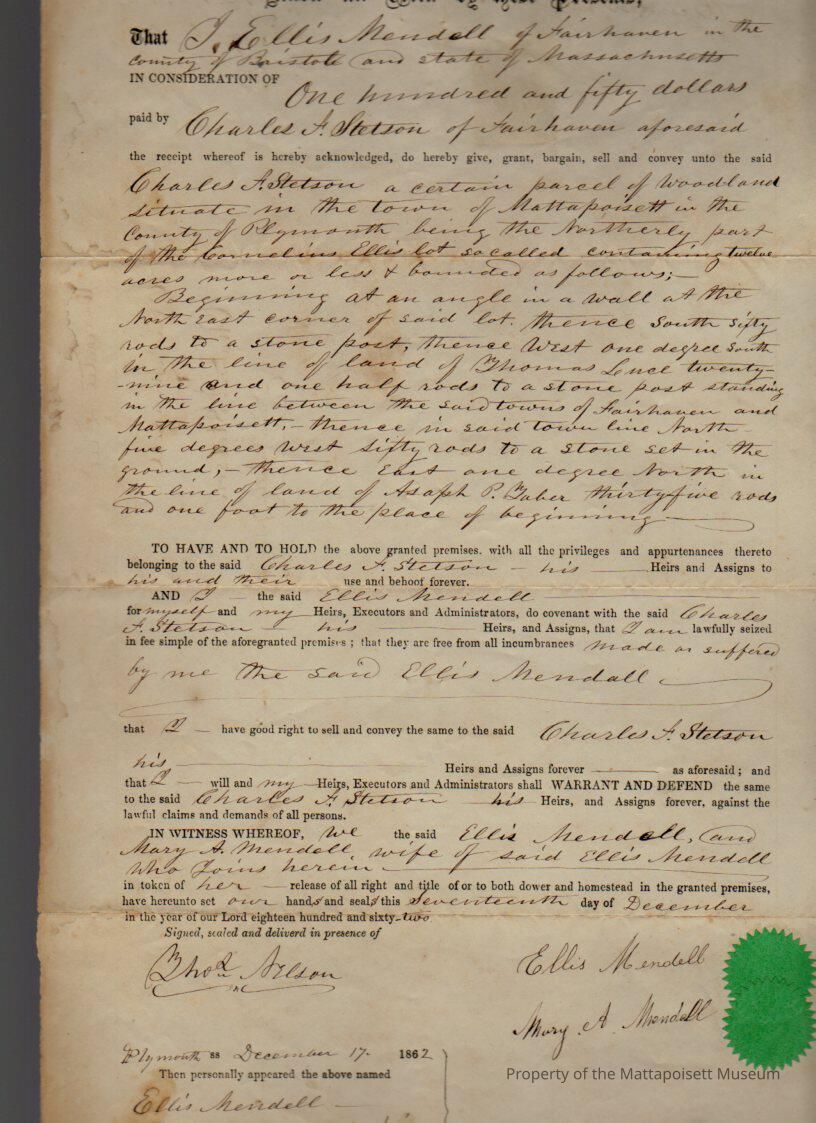 by these Presents,
That I, Ellis Mendell of Fairhaven in the
county of Bristole and state of Massachusetts
IN CONSIDERATION OF
One hundred and fifty dollars
paid by Charles F. Stetson of Fairhaven aforesaid
the receipt whereof is hereby acknowledged, do hereby give, grant, bargain, sell and convey unto the said
Charles F. Stetson a certain parcel of Woodland
situate in the town of Mattapoisett in the
County of Plymouth being the Northerly part
of the Cornelius Ellis lot so called containing twelve
acres more or less & bounded as follows;—
Beginning at an angle in a wall at the
North East corner of said lot. thence South sixty
rods to a stone post, thence West one degree South
in the line of land of Thomas Luce twenty-
-nine and one half rods to a stone post standing
in the line between the said towns of Fairhaven and
Mattapoisett,- thence in said town line North
five degrees West sixty rods to a stone set in the
ground,- thence East one degree North in
the line of land of Asaph P. Taber thirty five rods
and one foot to the place of beginning.
TO HAVE AND TO HOLD the above granted premises. with all the privileges and appurtenances thereto
belonging to the said Charles F. Stetson - his — Heirs and Assigns to
his and their use and behoof forever.
AND I — the said Ellis Mendell
for myself and my Heirs, Executors and Administrators, do covenant with the said Charles
F. Stetson his Heirs, and Assigns, that I am lawfully seized
in fee simple of the aforegranted premises ; that they are free from all incumbrances made or suffered
by me the said Ellis Mendall
that I — have good right to sell and convey the same to the said Charles F. Stetson
his — Heirs and Assigns forever — as aforesaid ; and
that I — will and my Heirs, Executors and Administrators shall WARRANT AND DEFEND the same
to the said Charles F. Stetson his Heirs, and Assigns forever, against the
lawful claims and demands of all persons.
IN WITNESS WHEREOF, we the said Ellis Mendell, and
Mary A. Mendell, wife of said Ellis Mendell
who joins herein
in token of her — release of all right and title of or to both dower and homestead in the granted premises,
have hereunto set our hands and seals this Seventeenth day of December
in the year of our Lord eighteen hundred and sixty-two.
Signed, sealed and deliverd in presence of
Thos. Nelson
Ellis Mendell
Mary A. Mendell
Plymouth ss December 17. 1862
Then personally appeared the above named
Ellis Mendell
Property of the Mattapoisett Museum